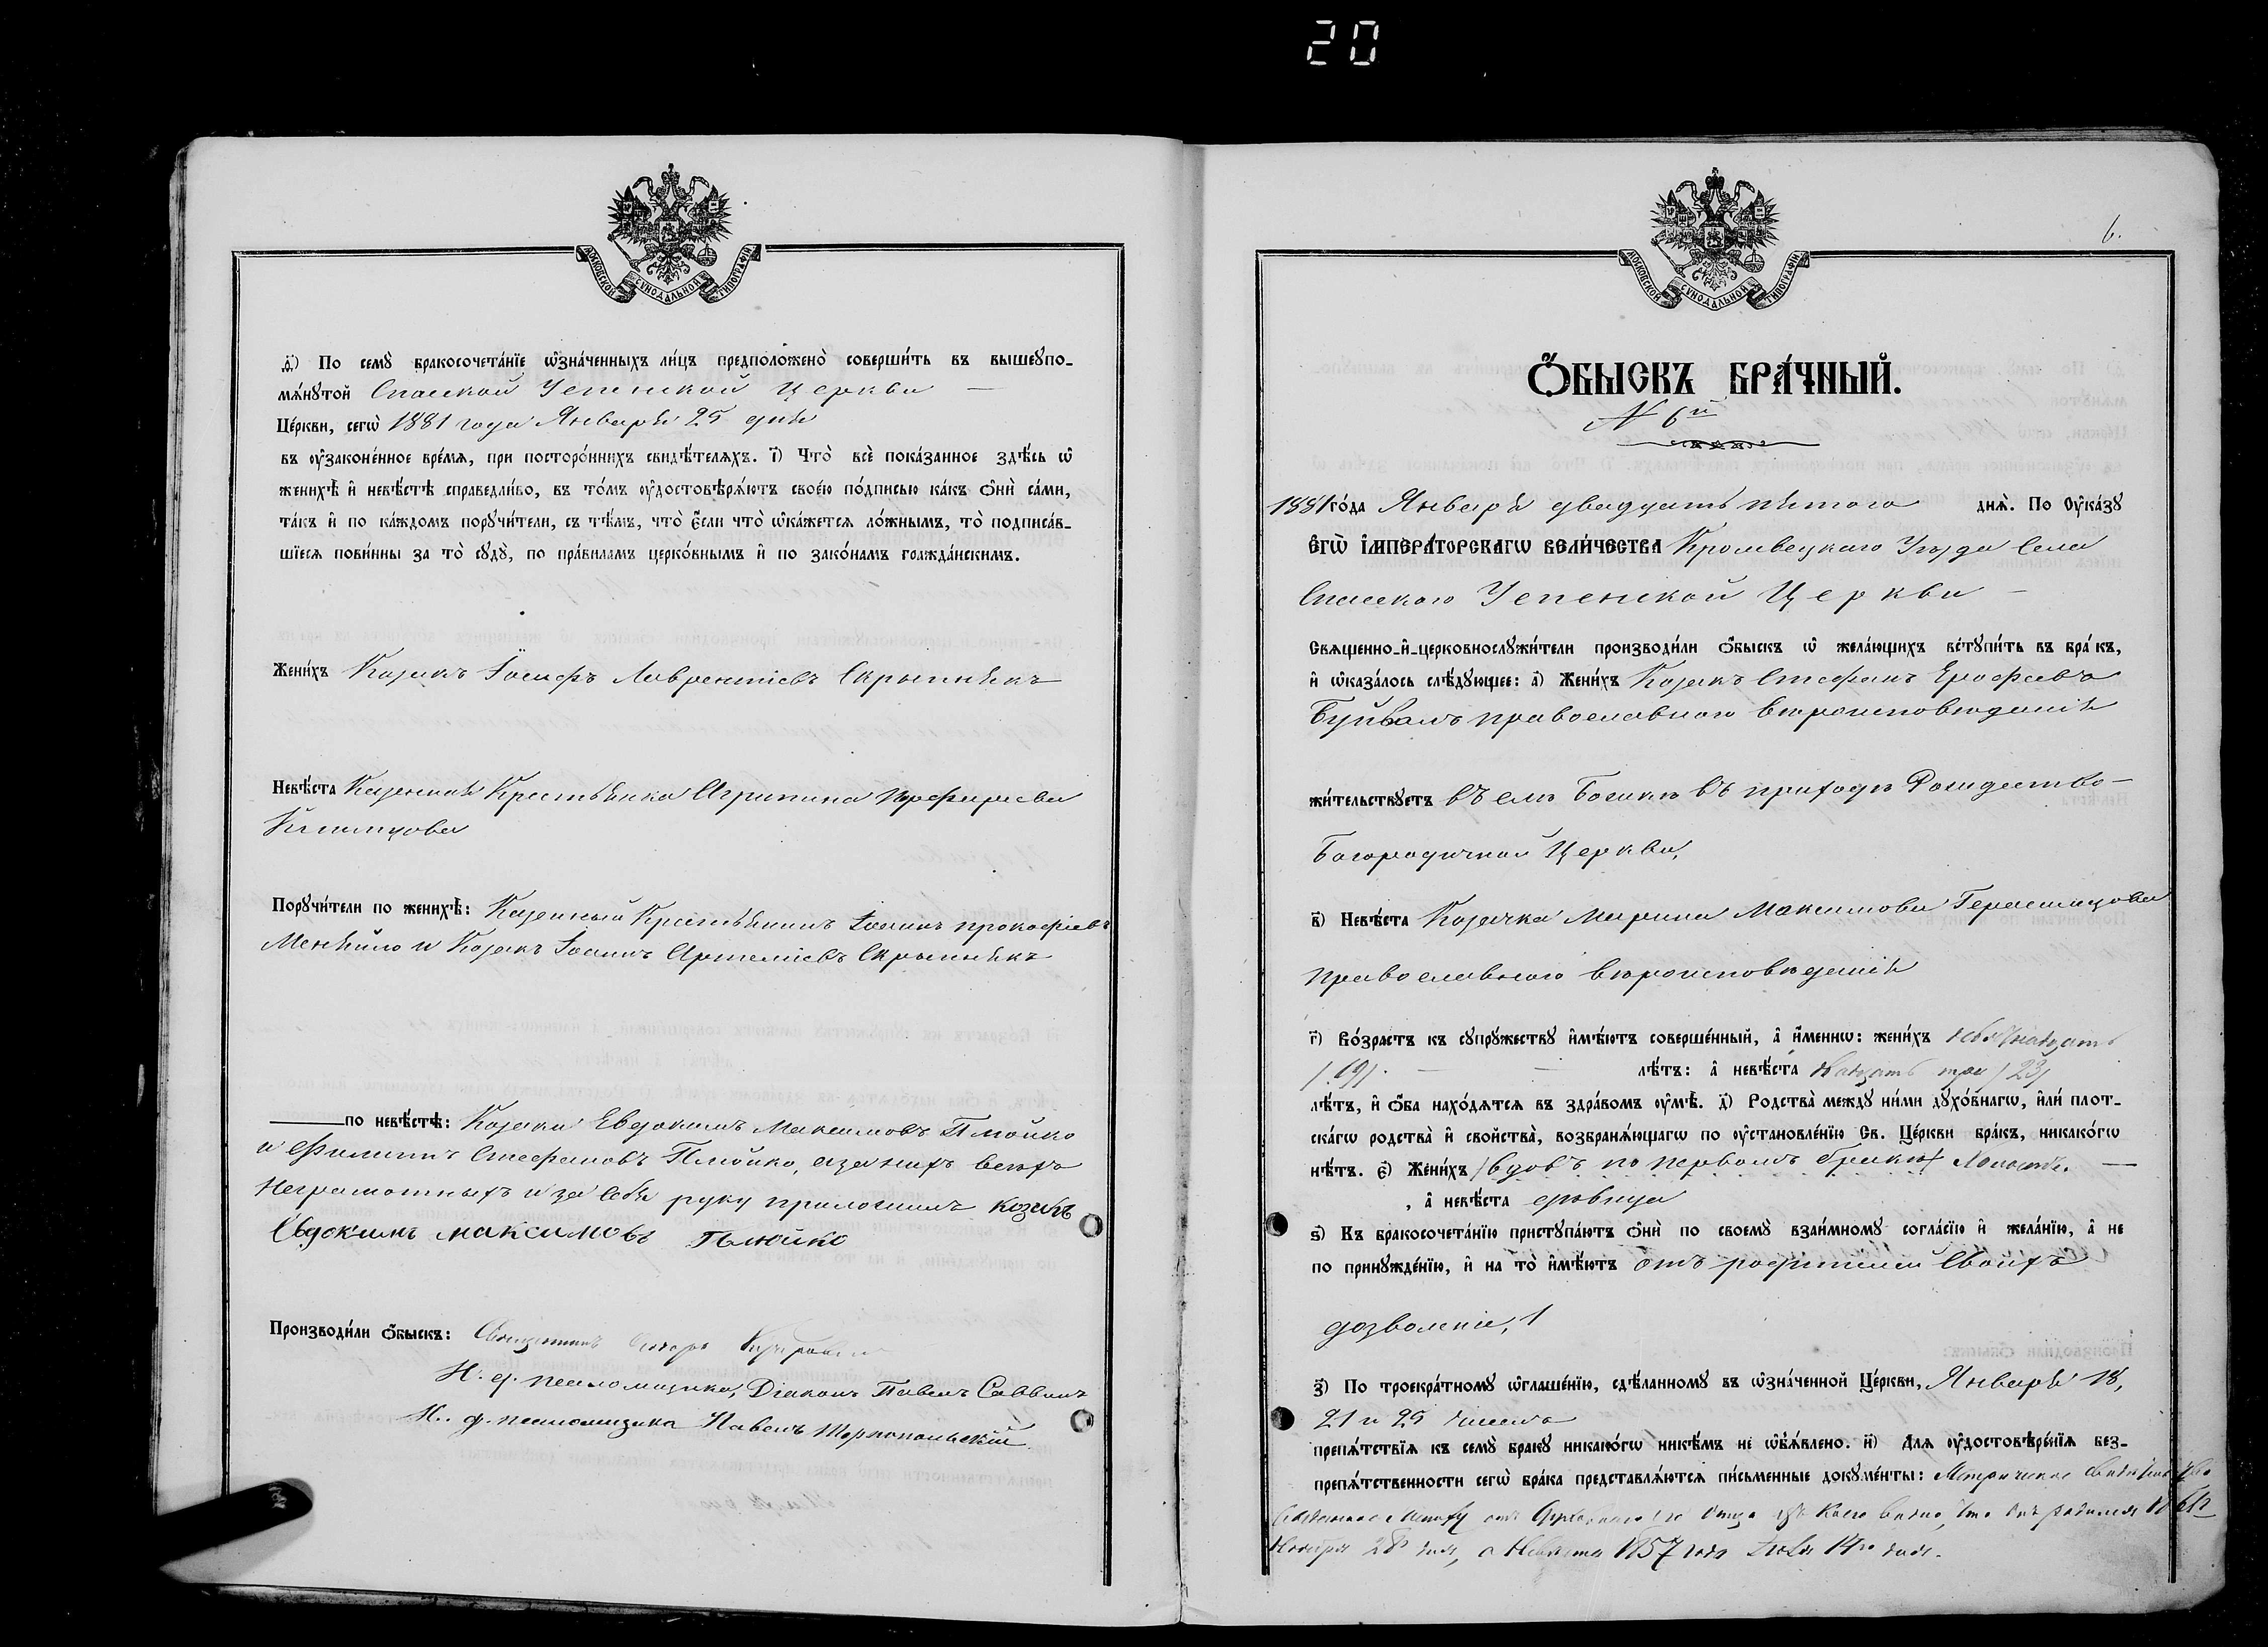 20
МОСКОВСКОЙ СѴНОДАЛЬНОЙ ТИПОГРАФІИ
д҃) По семꙋ̀ бракосочета́нїе ѡ҆зна́ченныхъ ли́цъ предположено̀ соверши́ть въ вышеꙋпо-
мѧ́нꙋтой Спаской Успенской Церкви —
Це́ркви, сегѡ̀ 1881 года Января 25 дня
въ ᲂу҆законе́нное вре́мѧ, при посторо́ннихъ свидѣ́телѧхъ. і҃) Что̀ всѐ пока́занное здѣ́сь ѡ҆
женихѣ̀ и҆ невѣ́стѣ справедли́во, въ то́мъ ᲂу҆достовѣрѧ́ютъ свое́ю по́дписью ка́къ ѻ҆нѝ са́ми,
та́къ и҆ по ка́ждомъ порꙋчи́тели, съ тѣ́мъ, что̀ є҆́сли что̀ ѡ҆ка́жетсѧ ло́жнымъ, то̀ подписа́в-
шїесѧ пови́нны за то̀ сꙋдꙋ̀, по пра́виламъ церко́внымъ и҆ по зако́намъ гражда́нскимъ.
Жени́хъ Козакъ Іосифъ Лаврентіевъ Скрыпникъ
Невѣ́ста Казенная Крестьянка Агрипина Порфиріева
Порꙋчи́тели по женихѣ̀: Казенный Крестьянинъ Іоаннъ Прокофіевъ
и Козакъ Іоаннъ Артеміевъ Скрыпникъ
по невѣ́стѣ: Козаки Евдокимъ Максимовъ Плюйко
и Филипъ Стефановъ Плюйко, а за нихъ всѣхъ
неграмотныхъ и за себя руку приложилъ козакъ
Евдокимъ максимовъ Плюйко
Производи́ли ѻ҆́быскъ: Священникъ
И. д. псаломщика, Діаконъ Павелъ Саввинъ
И. д. псаломщика Павелъ Тернопольскій
6.
МОСКОВСКОЙ СѴНОДАЛЬНОЙ ТИПОГРАФІИ
Ѻ҆́БЫСКЪ БРА́ЧНЫЙ.
№ 6й
1881 го́да Января двадцать пятого днѧ̀. По ᲂу҆ка́зꙋ
Є҆гѡ̀ І҆мпера́торскагѡ вели́чества Кролевецкаго Уѣзда Села
Спаского Успенской Церкви —
Свѧщенно-и҆-церковнослꙋжи́тели производи́ли ѻ҆́быскъ ѡ҆ жела́ющихъ встꙋпи́ть въ бра́къ,
и҆ ѡ҆каза́лось слѣ́дꙋющее: а҃) Жени́хъ Козакъ Стефанъ Ерофеевъ
Буйвалъ православного вѣроисповѣданія
жи́тельствꙋетъ въ приходѣ Рождество-
Богородичной Церкви,
в҃) Невѣ́ста Козачка Марина Максимова
православного вѣроисповѣданія
г҃) Во́зрастъ къ сꙋпрꙋ́жествꙋ и҆мѣ́ютъ соверше́нный, а҆ и҆́меннѡ: жени́хъ
/19/. — — лѣ́тъ: а҆ невѣ́ста двадцать три /23/
лѣ́тъ, и҆ ѻ҆́ба нахо́дѧтсѧ въ здра́вомъ ᲂу҆мѣ̀. д҃) Родства̀ междꙋ̀ ни́ми дꙋхо́внагѡ, и҆лѝ плот-
ска́гѡ родства̀ и҆ сво́йства, возбранѧ́ющагѡ по ᲂу҆становле́нїю Св. Це́ркви бра́къ, никако́гѡ
нѣ́тъ. є҃) Жени́хъ /вдовъ по первомъ бракѣ/ Холостъ. —
, а҆ невѣ́ста дѣвица
ѕ҃) Къ бракосочета́нїю пристꙋпа́ютъ ѻ҆нѝ по своемꙋ̀ взаи́мномꙋ согла́сїю и҆ жела́нїю, а҆ не
по принꙋжде́нїю, и҆ на то̀ и҆мѣ́ютъ отъ родителей своихъ
дозволеніе,
з҃) По троекра́тномꙋ ѡ҆глаше́нїю, сдѣ́ланномꙋ въ ѡ҆зна́ченной Це́ркви, Января 18,
21 и 25 числа
препѧ́тствїѧ къ семꙋ̀ бра́кꙋ никако́гѡ никѣ́мъ не ѡ҆б̾ѧ́влено. и҃) Длѧ ᲂу҆достовѣре́нїѧ без-
препѧ́тственности сегѡ̀ бра́ка представлѧ́ютсѧ пи́сьменные докꙋме́нты: Метрическое свидетельство
отъ изъ коего видно, что онъ родился 1861
Ноября 28 дня, а Невеста 1857 года Іюля 14го дня.